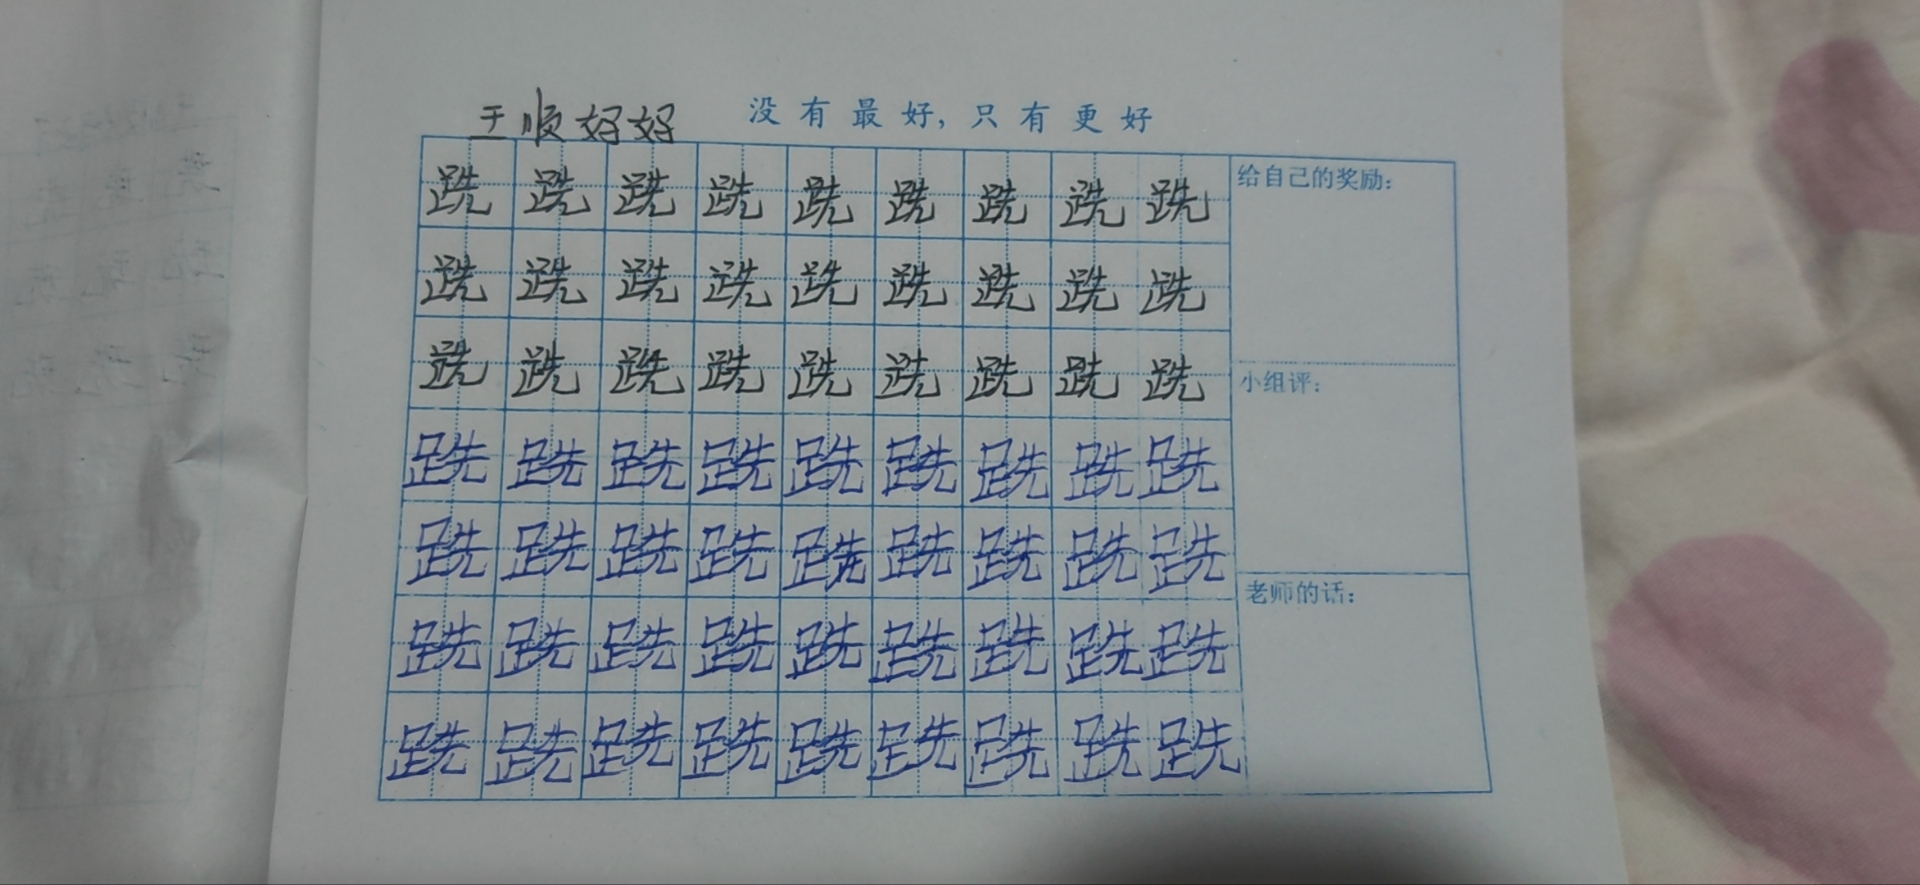 王顺好好
没有最好，只有更好
跣跣跣跣跣跣跣跣跣
跣跣跣跣跣跣跣跣跣
跣跣跣跣跣跣跣跣跣
跣跣跣跣跣跣跣跣跣
跣跣跣跣跣跣跣跣跣
跣跣跣跣跣跣跣跣跣
跣跣跣跣跣跣跣跣跣
给自己的奖励：
小组评：
老师的话：